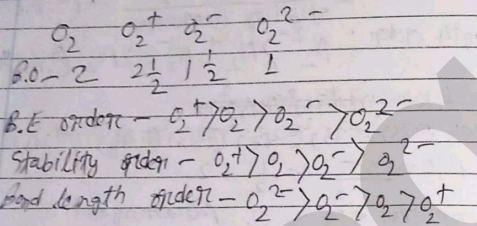 O₂ O₂⁺ O₂⁻ O₂²⁻
B.O - 2 2½ 1½ 1
B.E order - O₂⁺>O₂>O₂⁻>O₂²⁻
Stability order - O₂⁺>O₂>O₂⁻>O₂²⁻
Bond length order - O₂²⁻>O₂⁻>O₂>O₂⁺